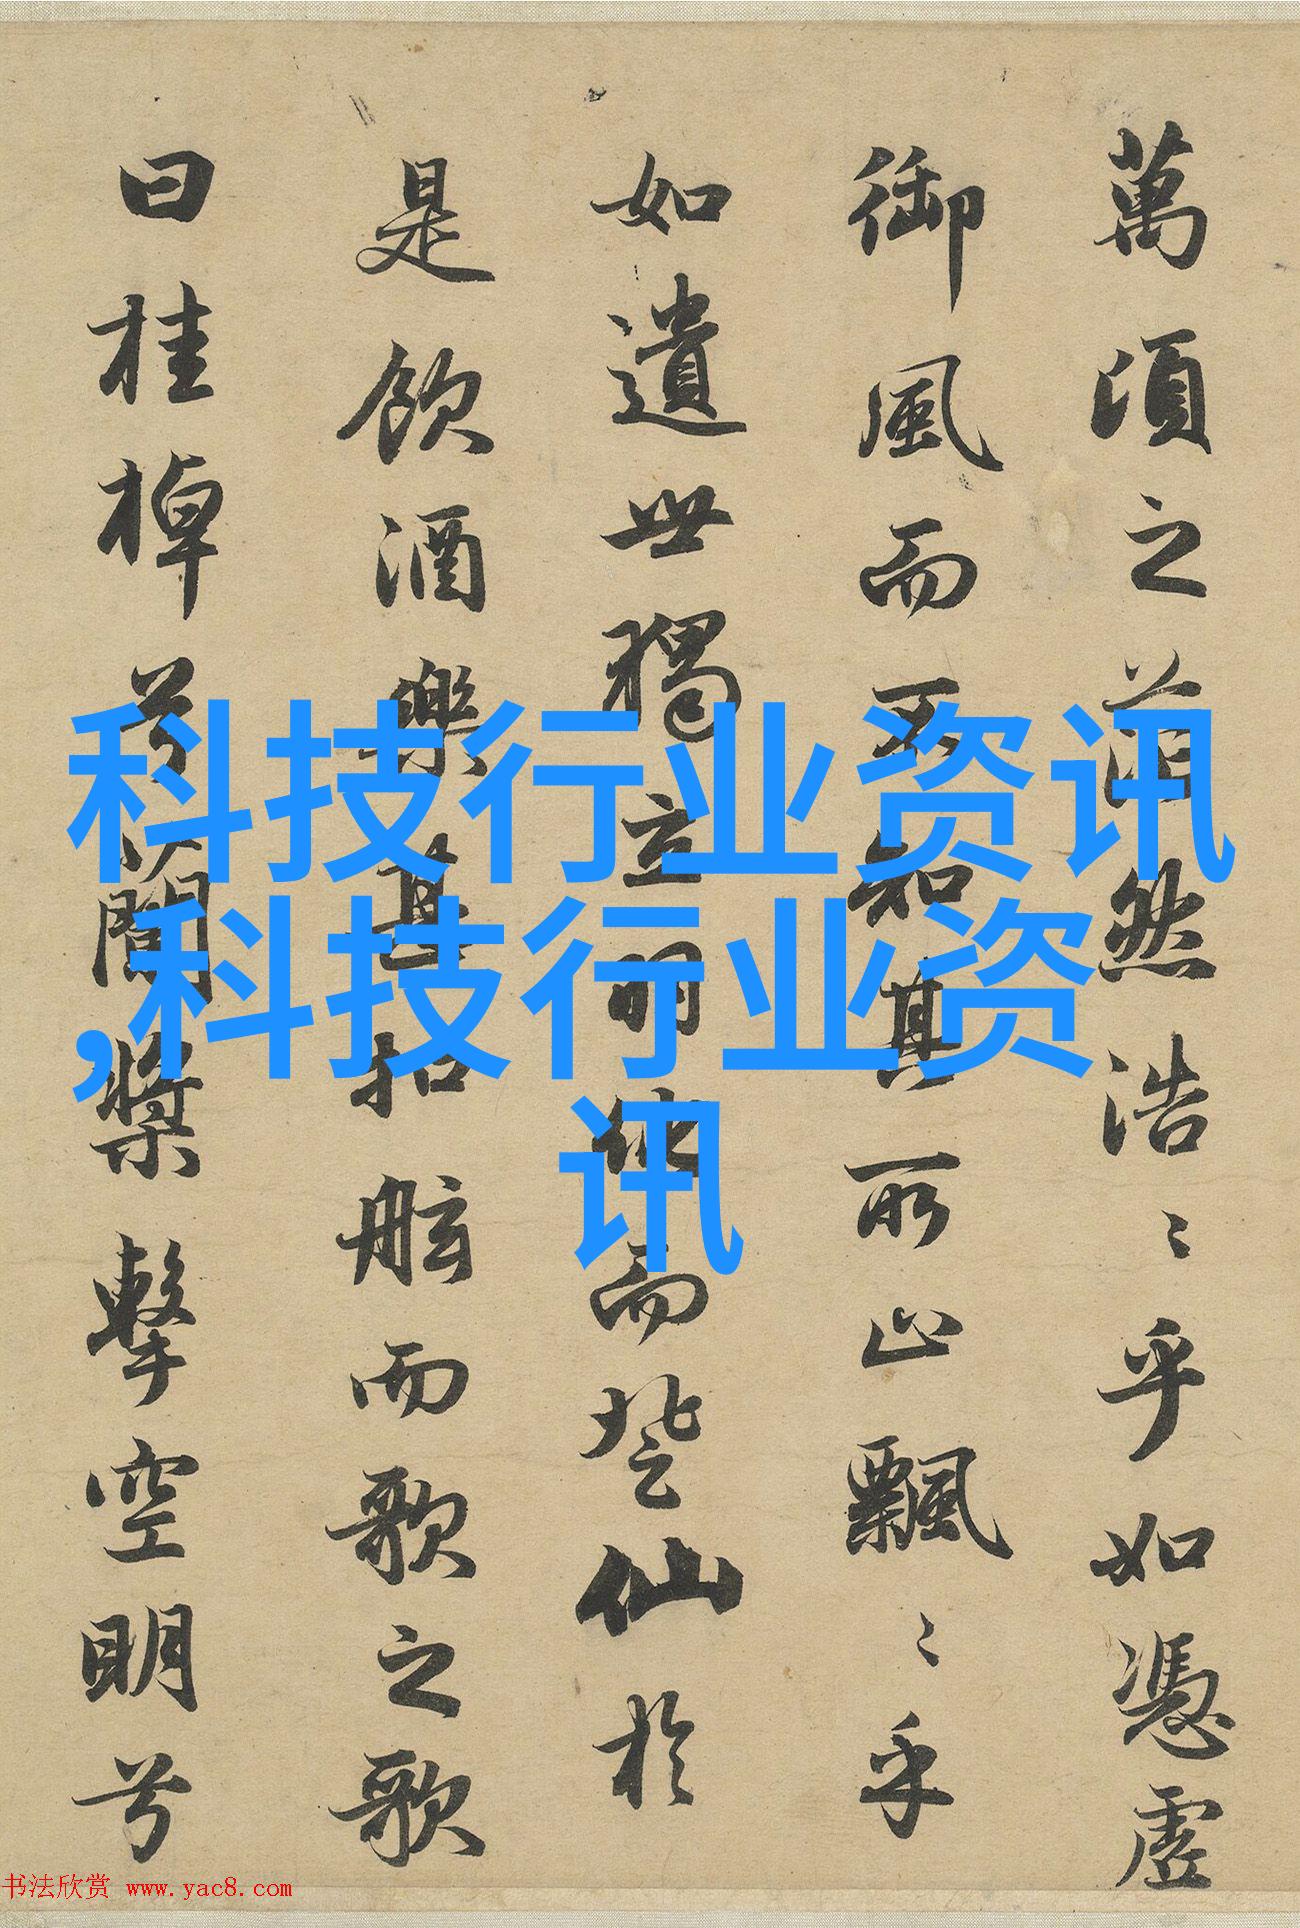 萬頃之茫然浩〻乎如憑虛
御風而不知其所止飄〻乎
如遺世獨立羽化而登仙於
是飲酒樂甚扣舷而歌之歌
曰桂棹兮蘭槳擊空明兮
科技行业资讯
,科技行业资
讯
书法欣赏 www.yac8.com